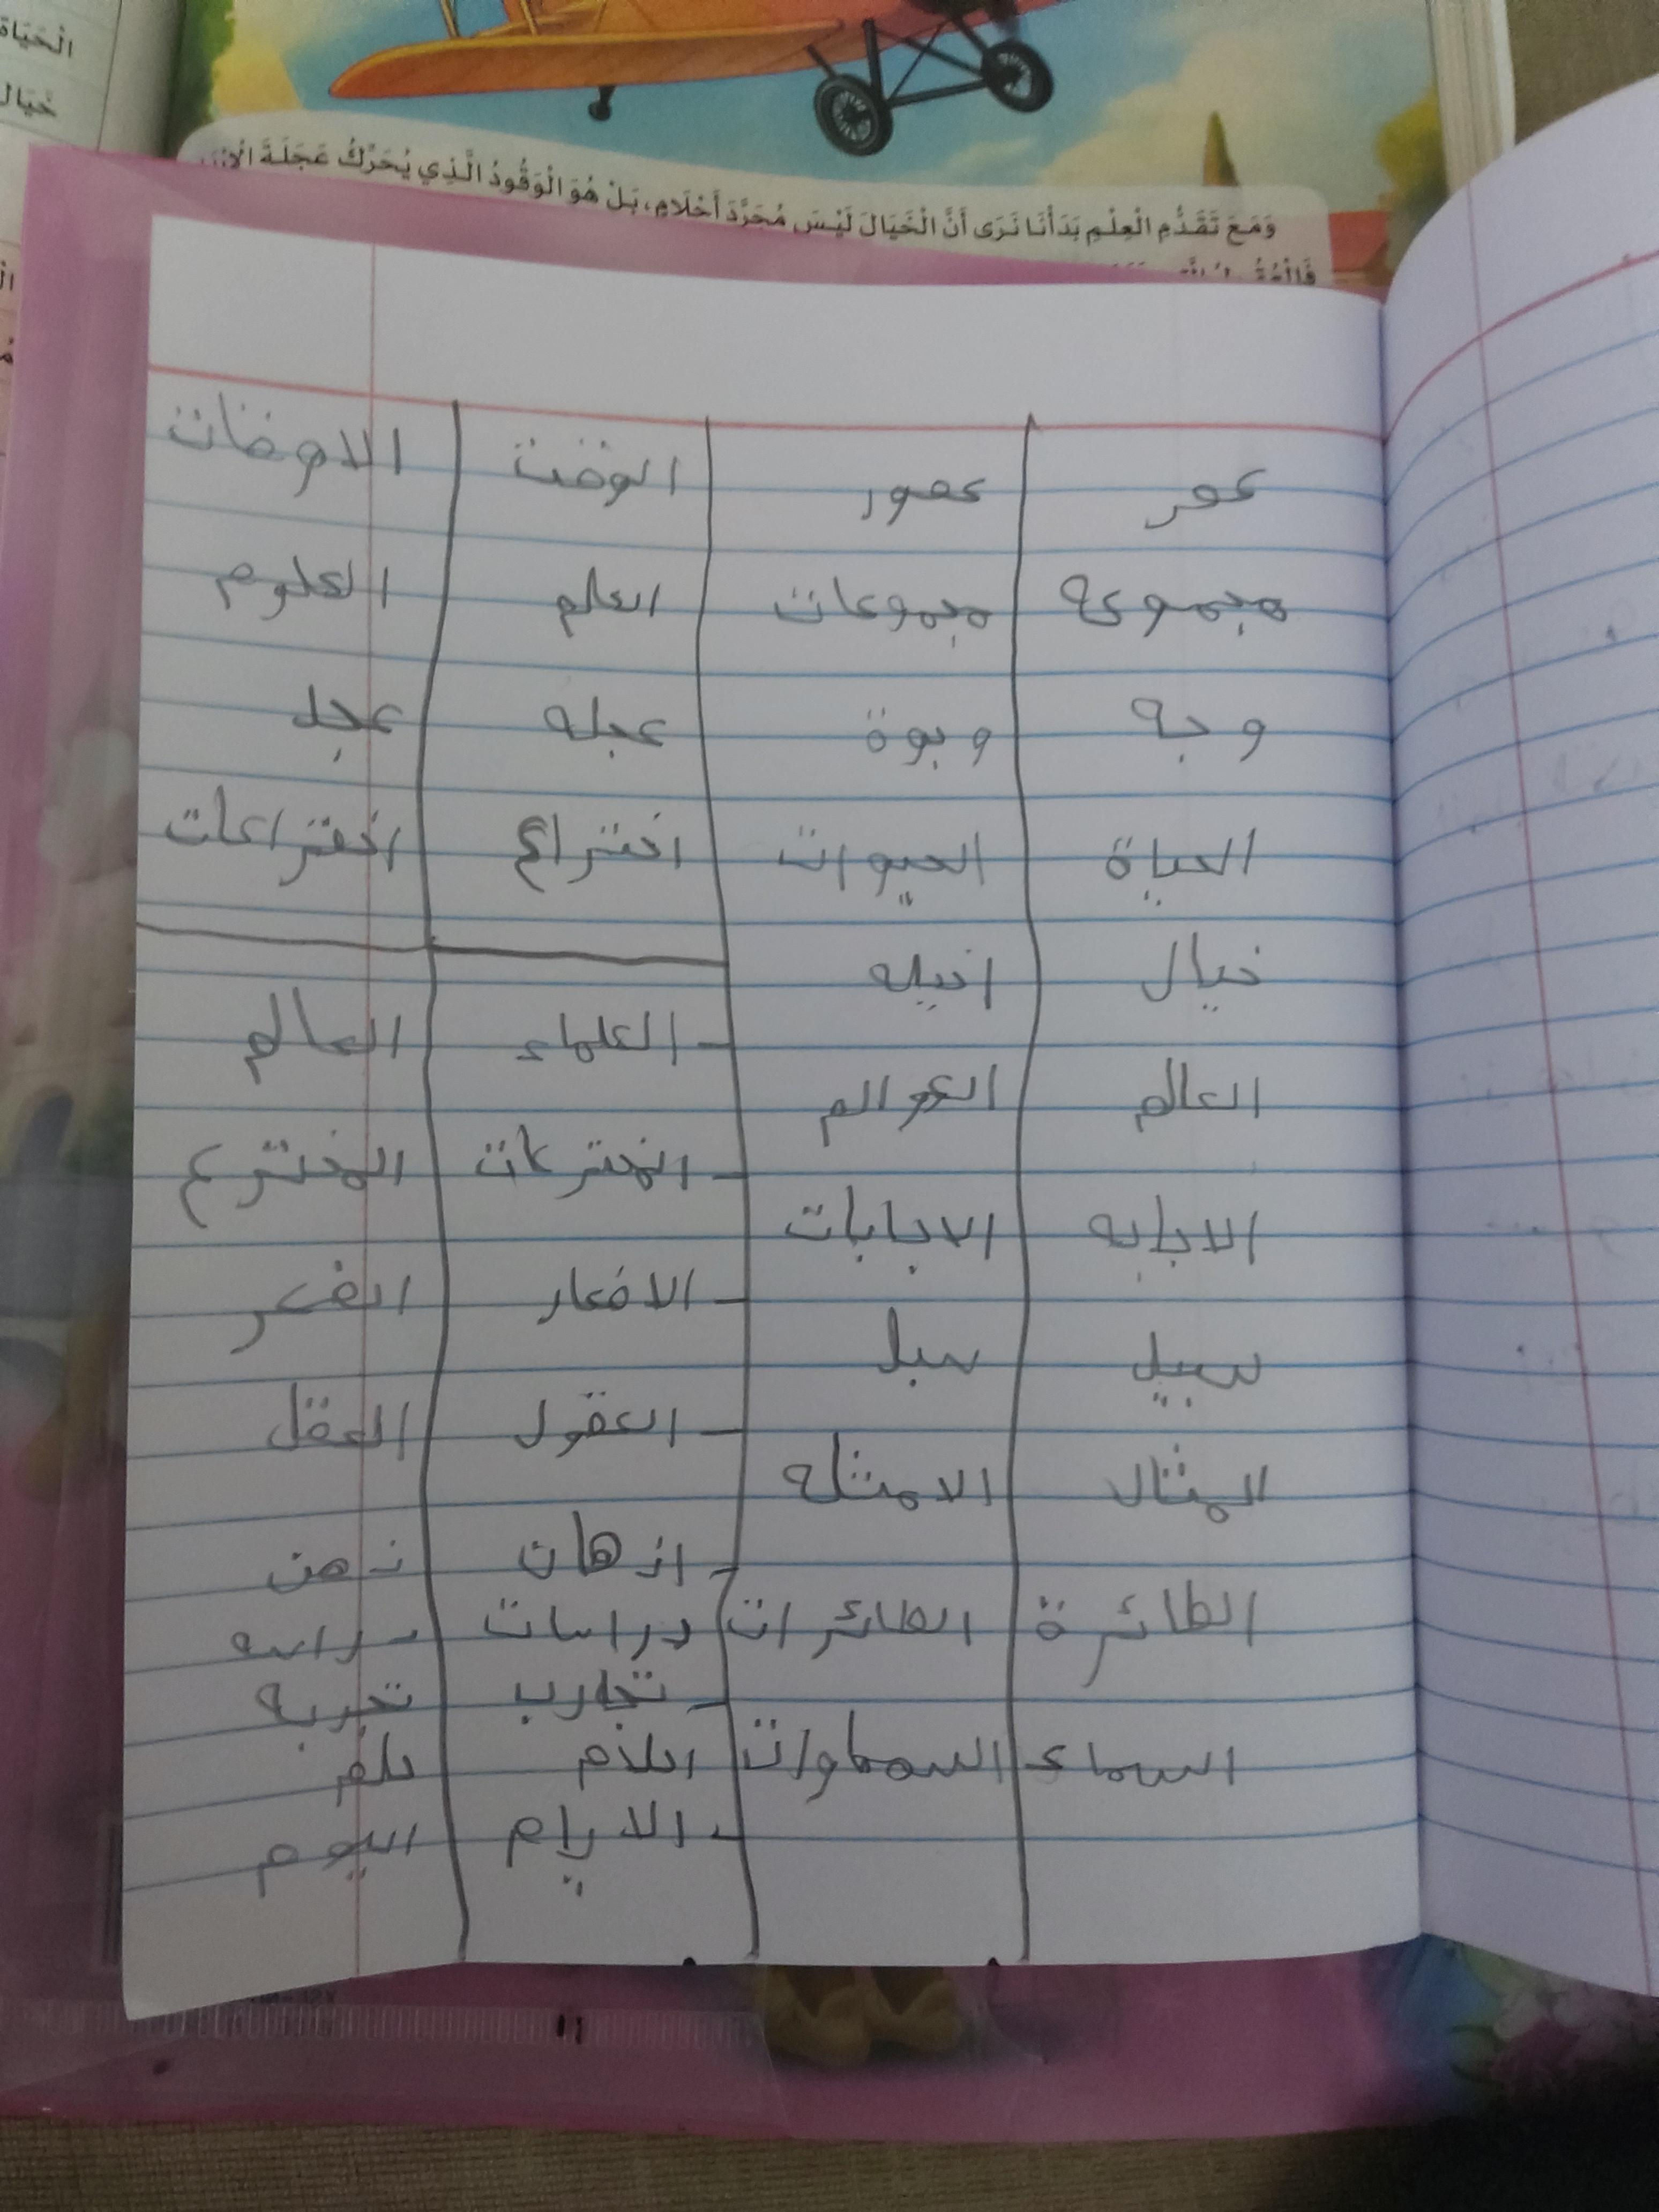 الْحَيَاةَ
خَيَال
وَمَعَ تَقَدُّمِ الْعِلْمِ بَدَأْنَا نَرَى أَنَّ الْخَيَالَ لَيْسَ مُجَرَّدَ أَحْلَامٍ، بَلْ هُوَ الْوَقُودُ الَّذِي يُحَرِّكُ عَجَلَةَ
عصر عصور الوقت الاوقات
مجموعه مجموعات العلم العلوم
وجه وجوة عجله عجل
الحياة الحيوات اختراع اختراعات
خيال اخيله
العلماء العالم
العالم العوالم
المخترعات المخترع
الاجابه الاجابات
الافكار الفكر
سبيل سبل
العقول العقل
المثال الامثله
اذهان ذهن
الطائرة الطائرات دراسات دراسه
تجارب تجربه
السماء السماوات احلام حلم
الايام اليوم